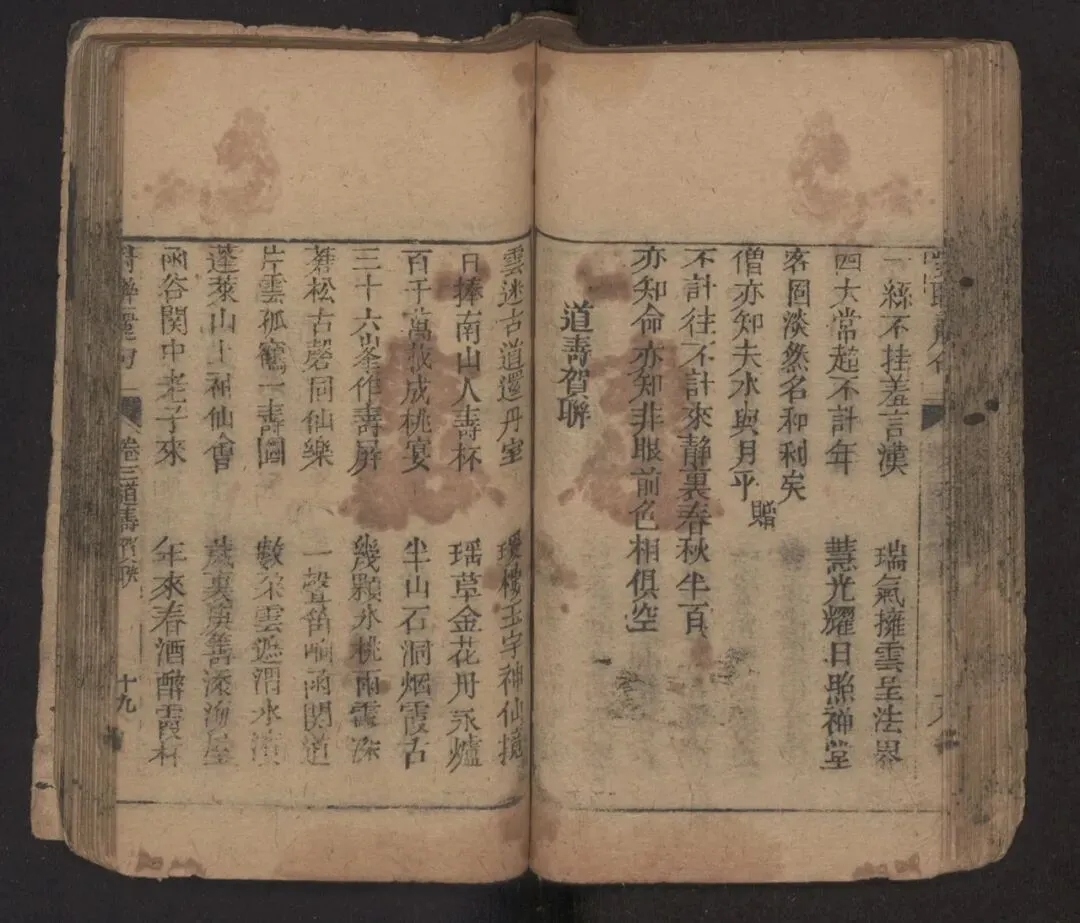 一絲不挂羞言漢　瑞氣擁雲呈法界
四大常起不計年　慧光耀日照禅堂
客固淡然名和利矣
僧亦知夫水與月乎　贈
不計往不計來靜裏春秋半百
亦知命亦知非眼前色相俱空
道壽賀聯
雲迷古道還丹室　瓊樓玉宇神仙境
日捧南山人壽杯　瑶草金花丹永爐
百千萬歲成桃宴　半山石洞烟霞古
三十六峯作壽屏　幾顆氷桃雨露深
蒼松古磬同仙樂　一聲笛响函関道
片雲孤鶴一壽圖　數朶雲遮渭水濱
蓬萊山上神仙會　歲裏庚籌添海屋
函谷関中老子來　年來春酒醉霞杯
對聯 卷三道壽賀聯 十九